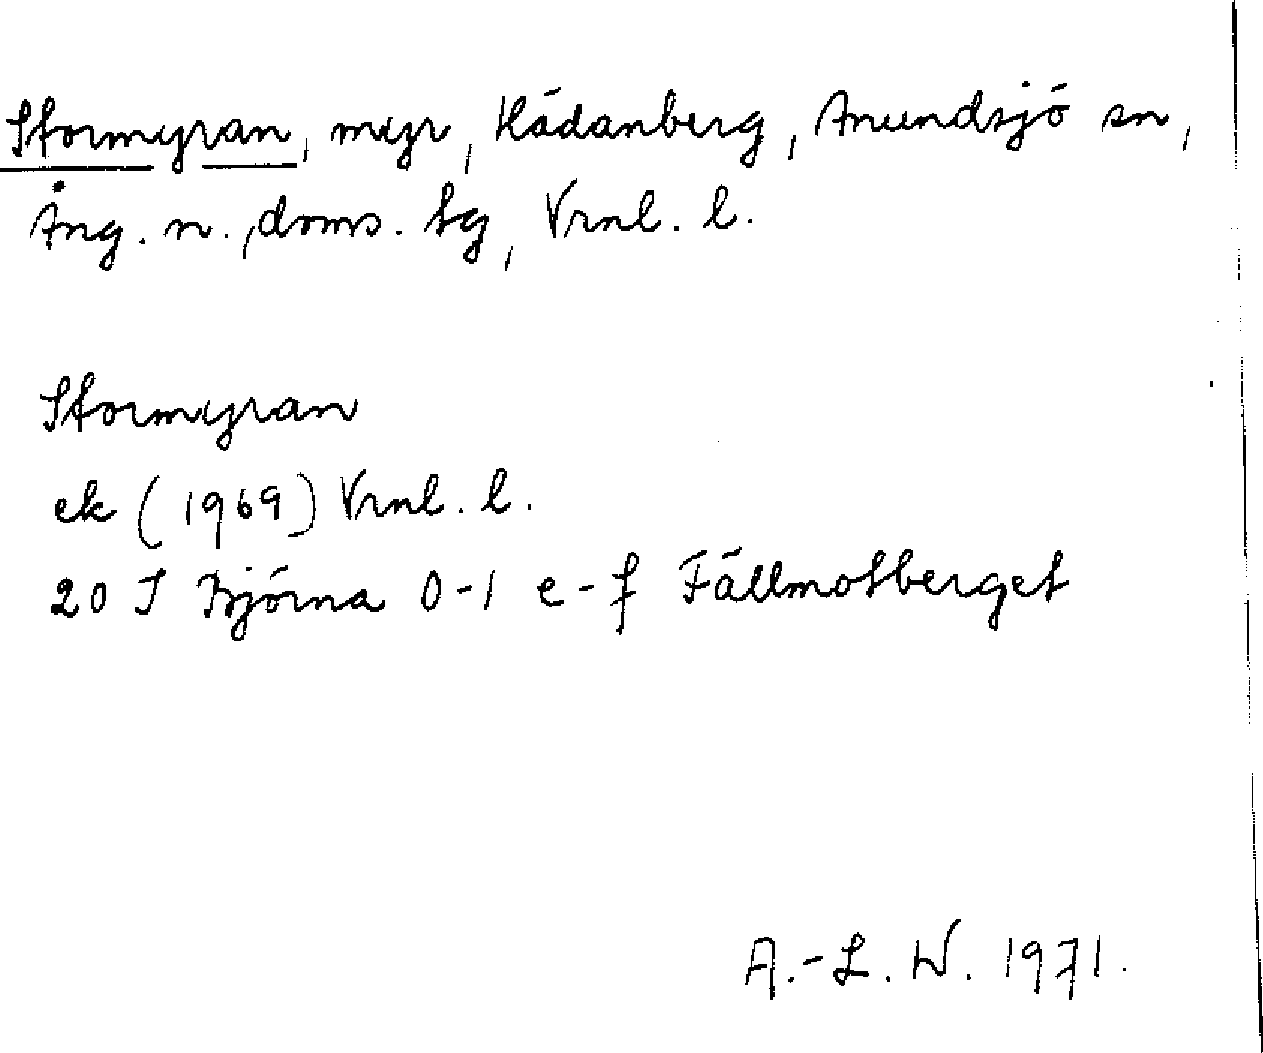 Stormyran, myr, Kädanberg, Anundsjö sn,
Ång. n., doms. tg, Vrnl. l.
Stormyran
ek (1969) Vrnl. l.
20 I Björna 0-1 e-f Fällmotberget
A.-L. W. 1971.